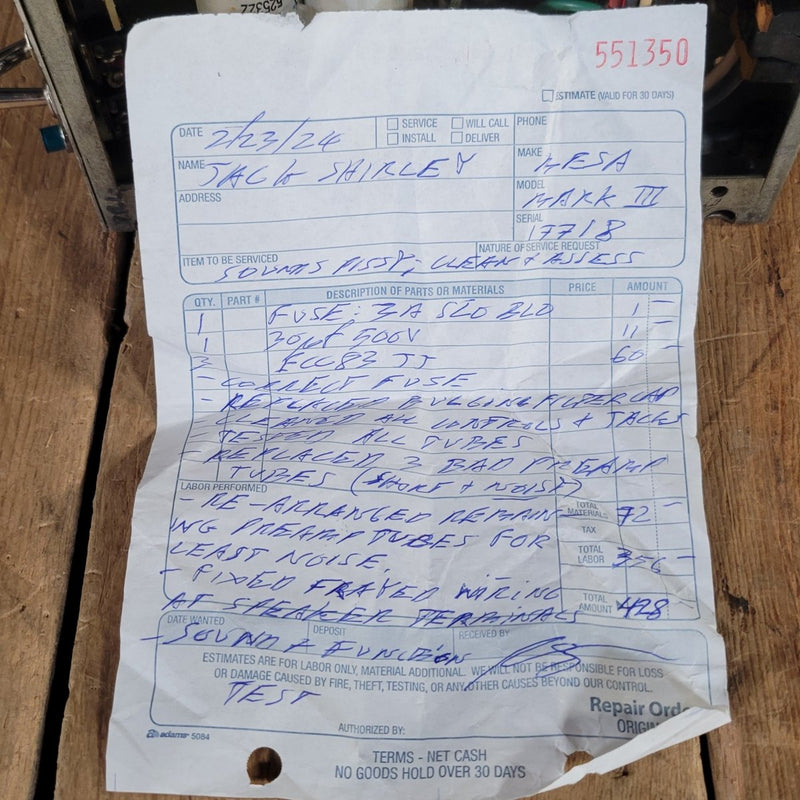 625322
551350
ESTIMATE (VALID FOR 30 DAYS)
DATE 2/23/24
SERVICE WILL CALL
INSTALL DELIVER
PHONE
NAME JACK SHIRLEY
MAKE MESA
ADDRESS
MODEL MARK III
SERIAL 17718
ITEM TO BE SERVICED NATURE OF SERVICE REQUEST
SOUNDS FISSY; CLEAN + ASSESS
QTY. PART # DESCRIPTION OF PARTS OR MATERIALS PRICE AMOUNT
1 FUSE: 3A SLO BLO 1 —
1 30µF 500V 11 —
3 ECC83 JJ 60 —
- CORRECT FUSE
- REPLACED BULGING FILTER CAP
- CLEANED ALL CONTROLS + JACKS
- TESTED ALL TUBES
- REPLACED 3 BAD PREAMP
TUBES (SHORT + NOISY)
LABOR PERFORMED
- RE-ARRANGED REMAIN-
TOTAL MATERIALS 72 —
ING PREAMP TUBES FOR
TAX
LEAST NOISE
TOTAL LABOR 356 —
- FIXED FRAYED WIRING
AT SPEAKER TERMINALS
TOTAL AMOUNT 428 —
DATE WANTED DEPOSIT RECEIVED BY
- SOUND + FUNCTION
ESTIMATES ARE FOR LABOR ONLY, MATERIAL ADDITIONAL. WE WILL NOT BE RESPONSIBLE FOR LOSS
OR DAMAGE CAUSED BY FIRE, THEFT, TESTING, OR ANY OTHER CAUSES BEYOND OUR CONTROL.
TEST
Repair Orde
ORIGIN
adams 5084
AUTHORIZED BY:
TERMS - NET CASH
NO GOODS HOLD OVER 30 DAYS